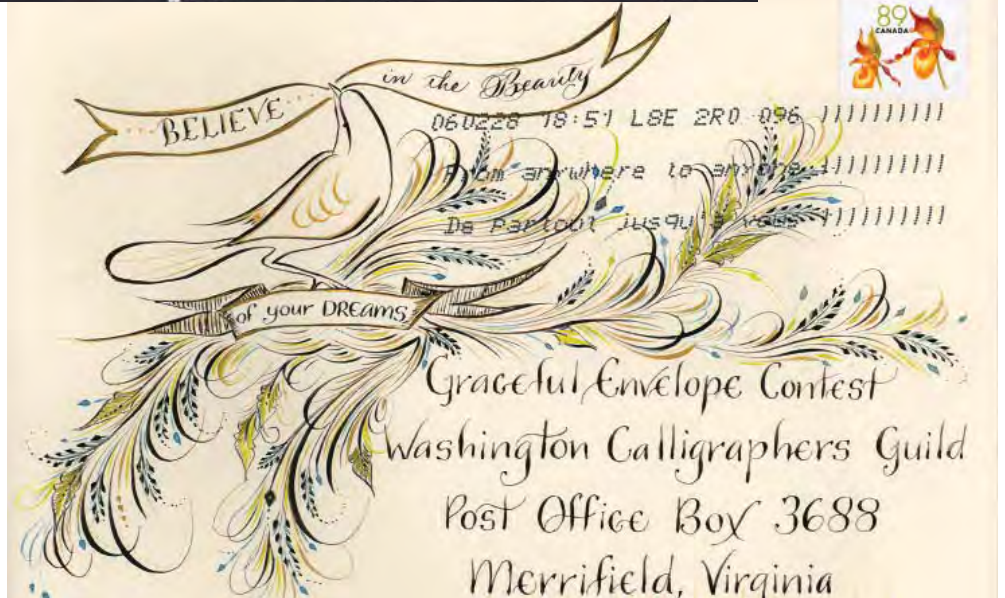 89
CANADA
BELIEVE
in the Beauty
060228 18:51 L8E 2R0 096
From anywhere to anyone
De Partout jusqu'à vous
of your DREAMS
Graceful Envelope Contest
Washington Calligraphers Guild
Post Office Box 3688
Merrifield, Virginia